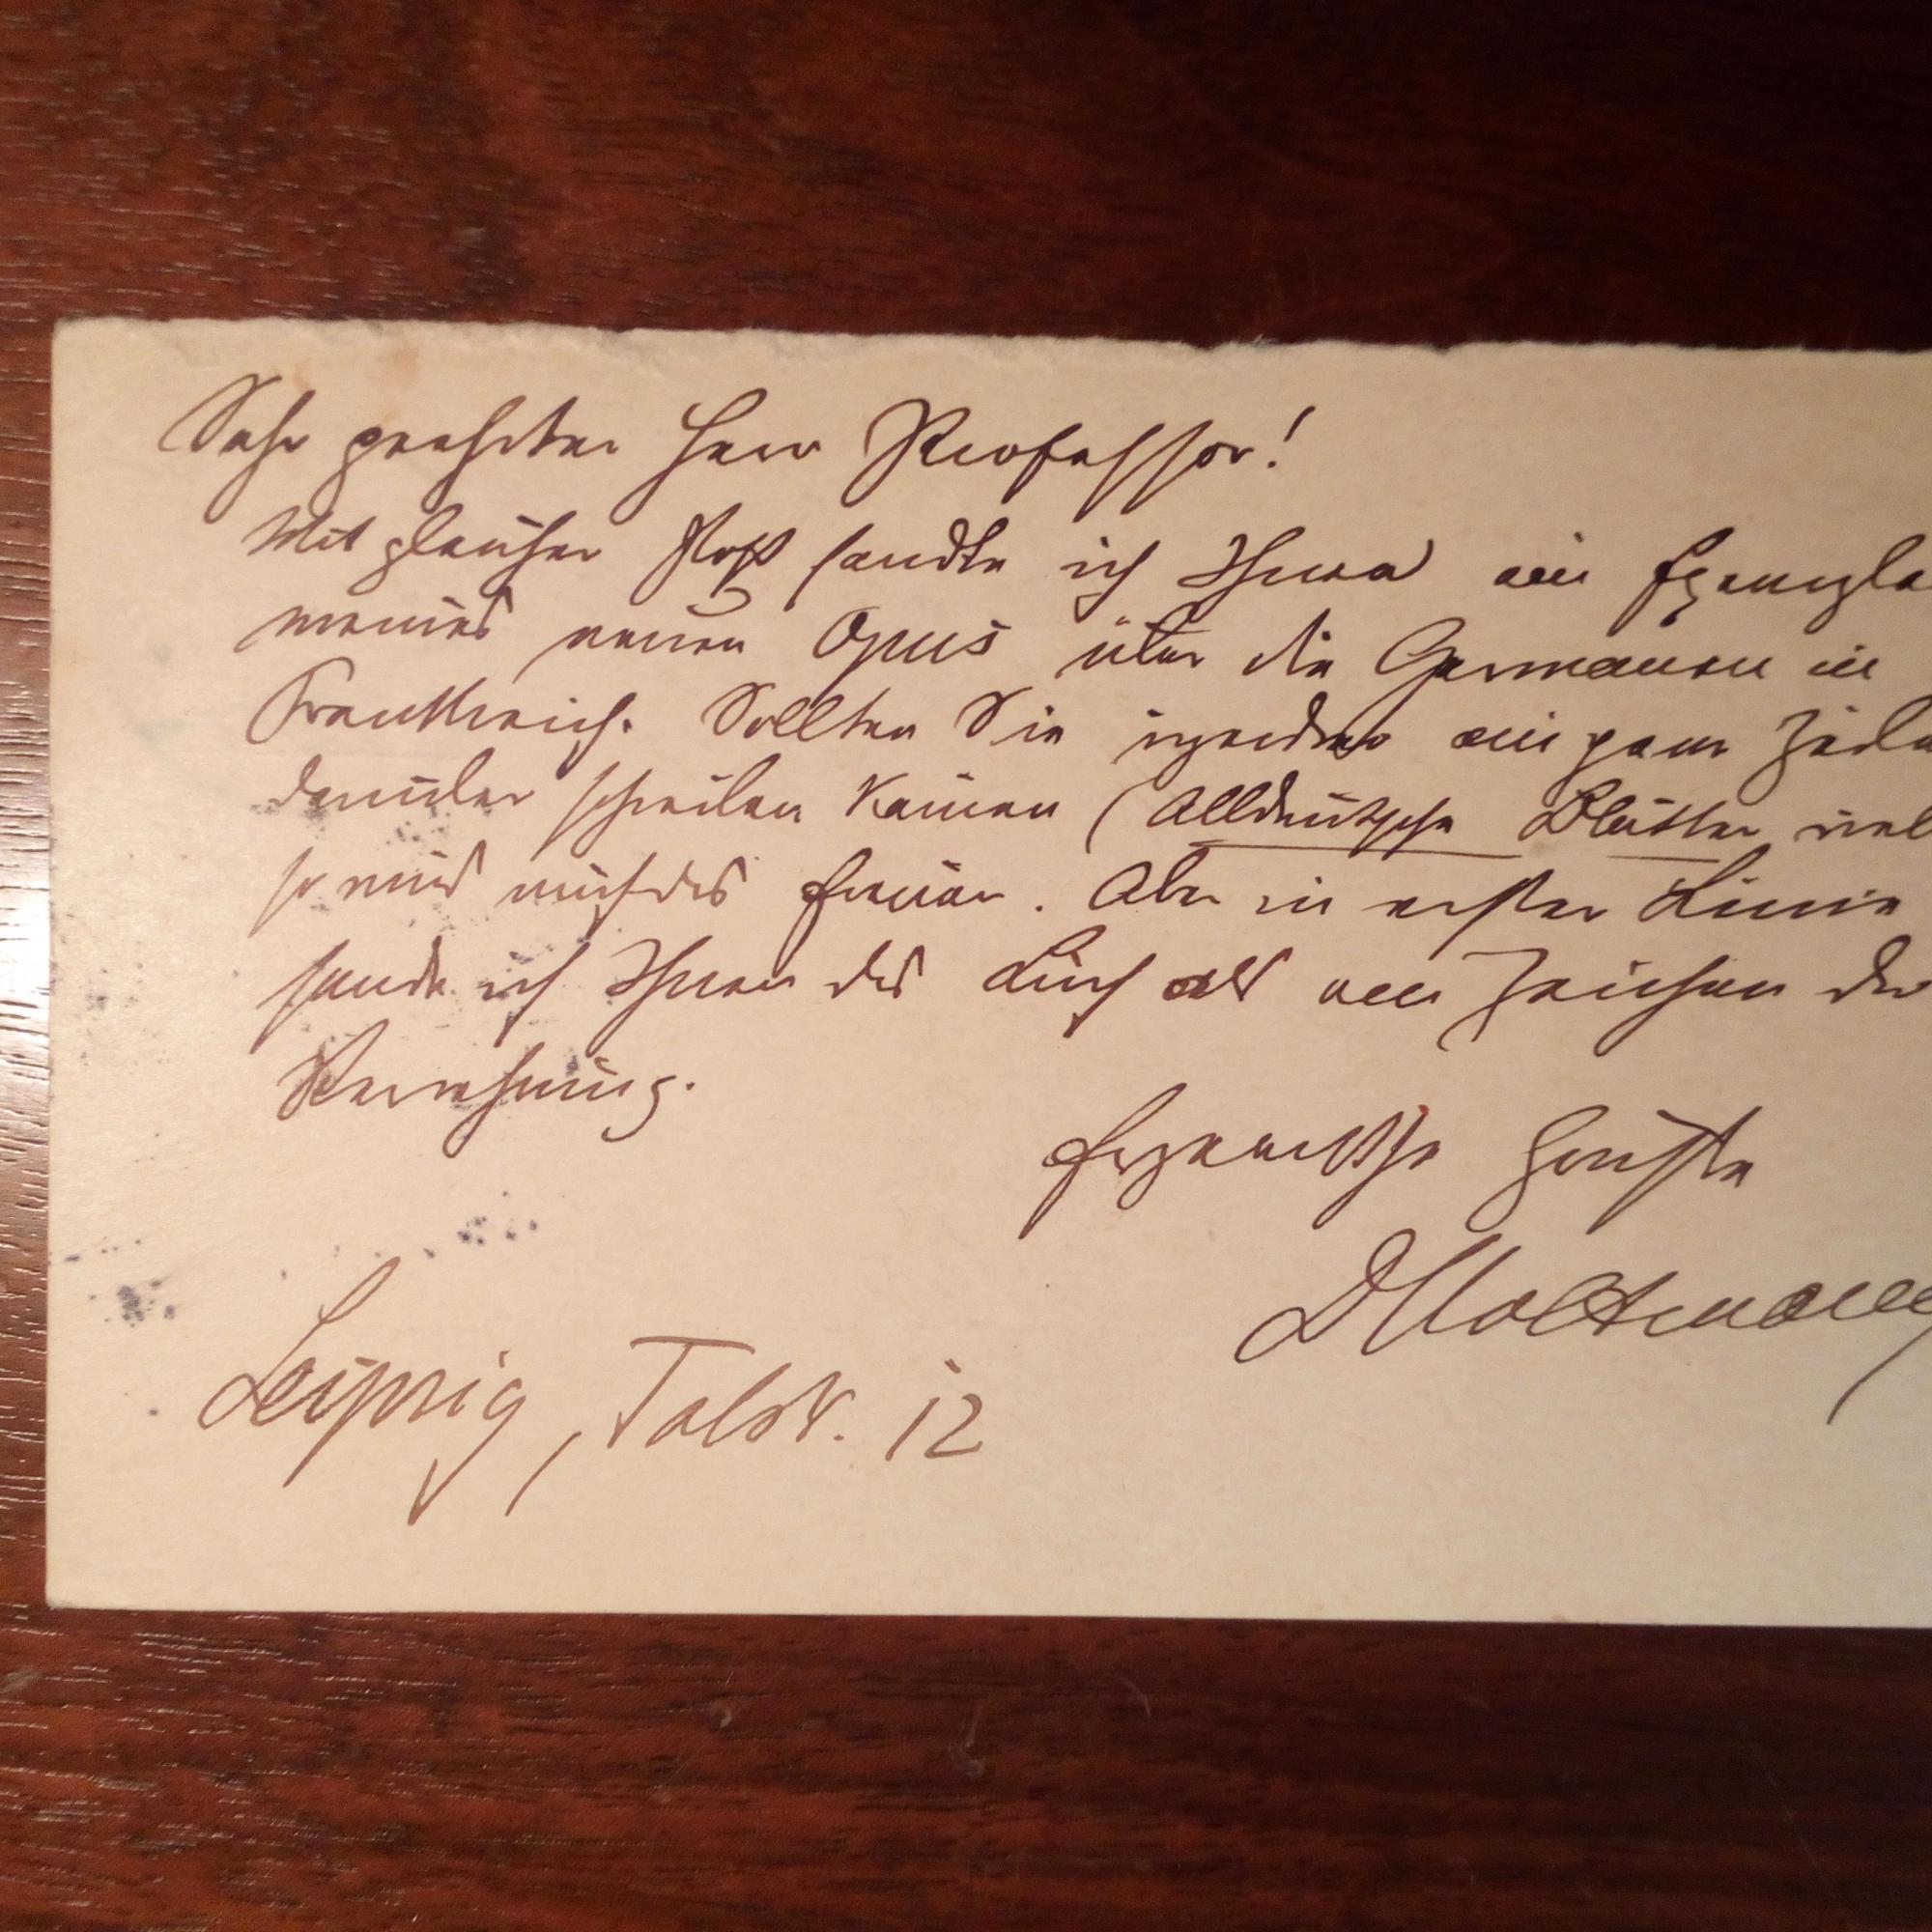 Sehr geehrter Herr Professor!
Mit gleicher Post sandte ich Ihnen ein Exempla
meines neuen Opus über die Germanen in
Frankreich. Sollten Sie irgendwo ein paar Zeile
darüber schreiben können (Alldeutsche Blätter viel
so würd mich das freuen. Aber in erster Linie
sende ich Ihnen das Buch als ein Zeichen der
Verehrung.
Ergebenste Grüße
DWoltmann
Leipzig, Talstr. 12